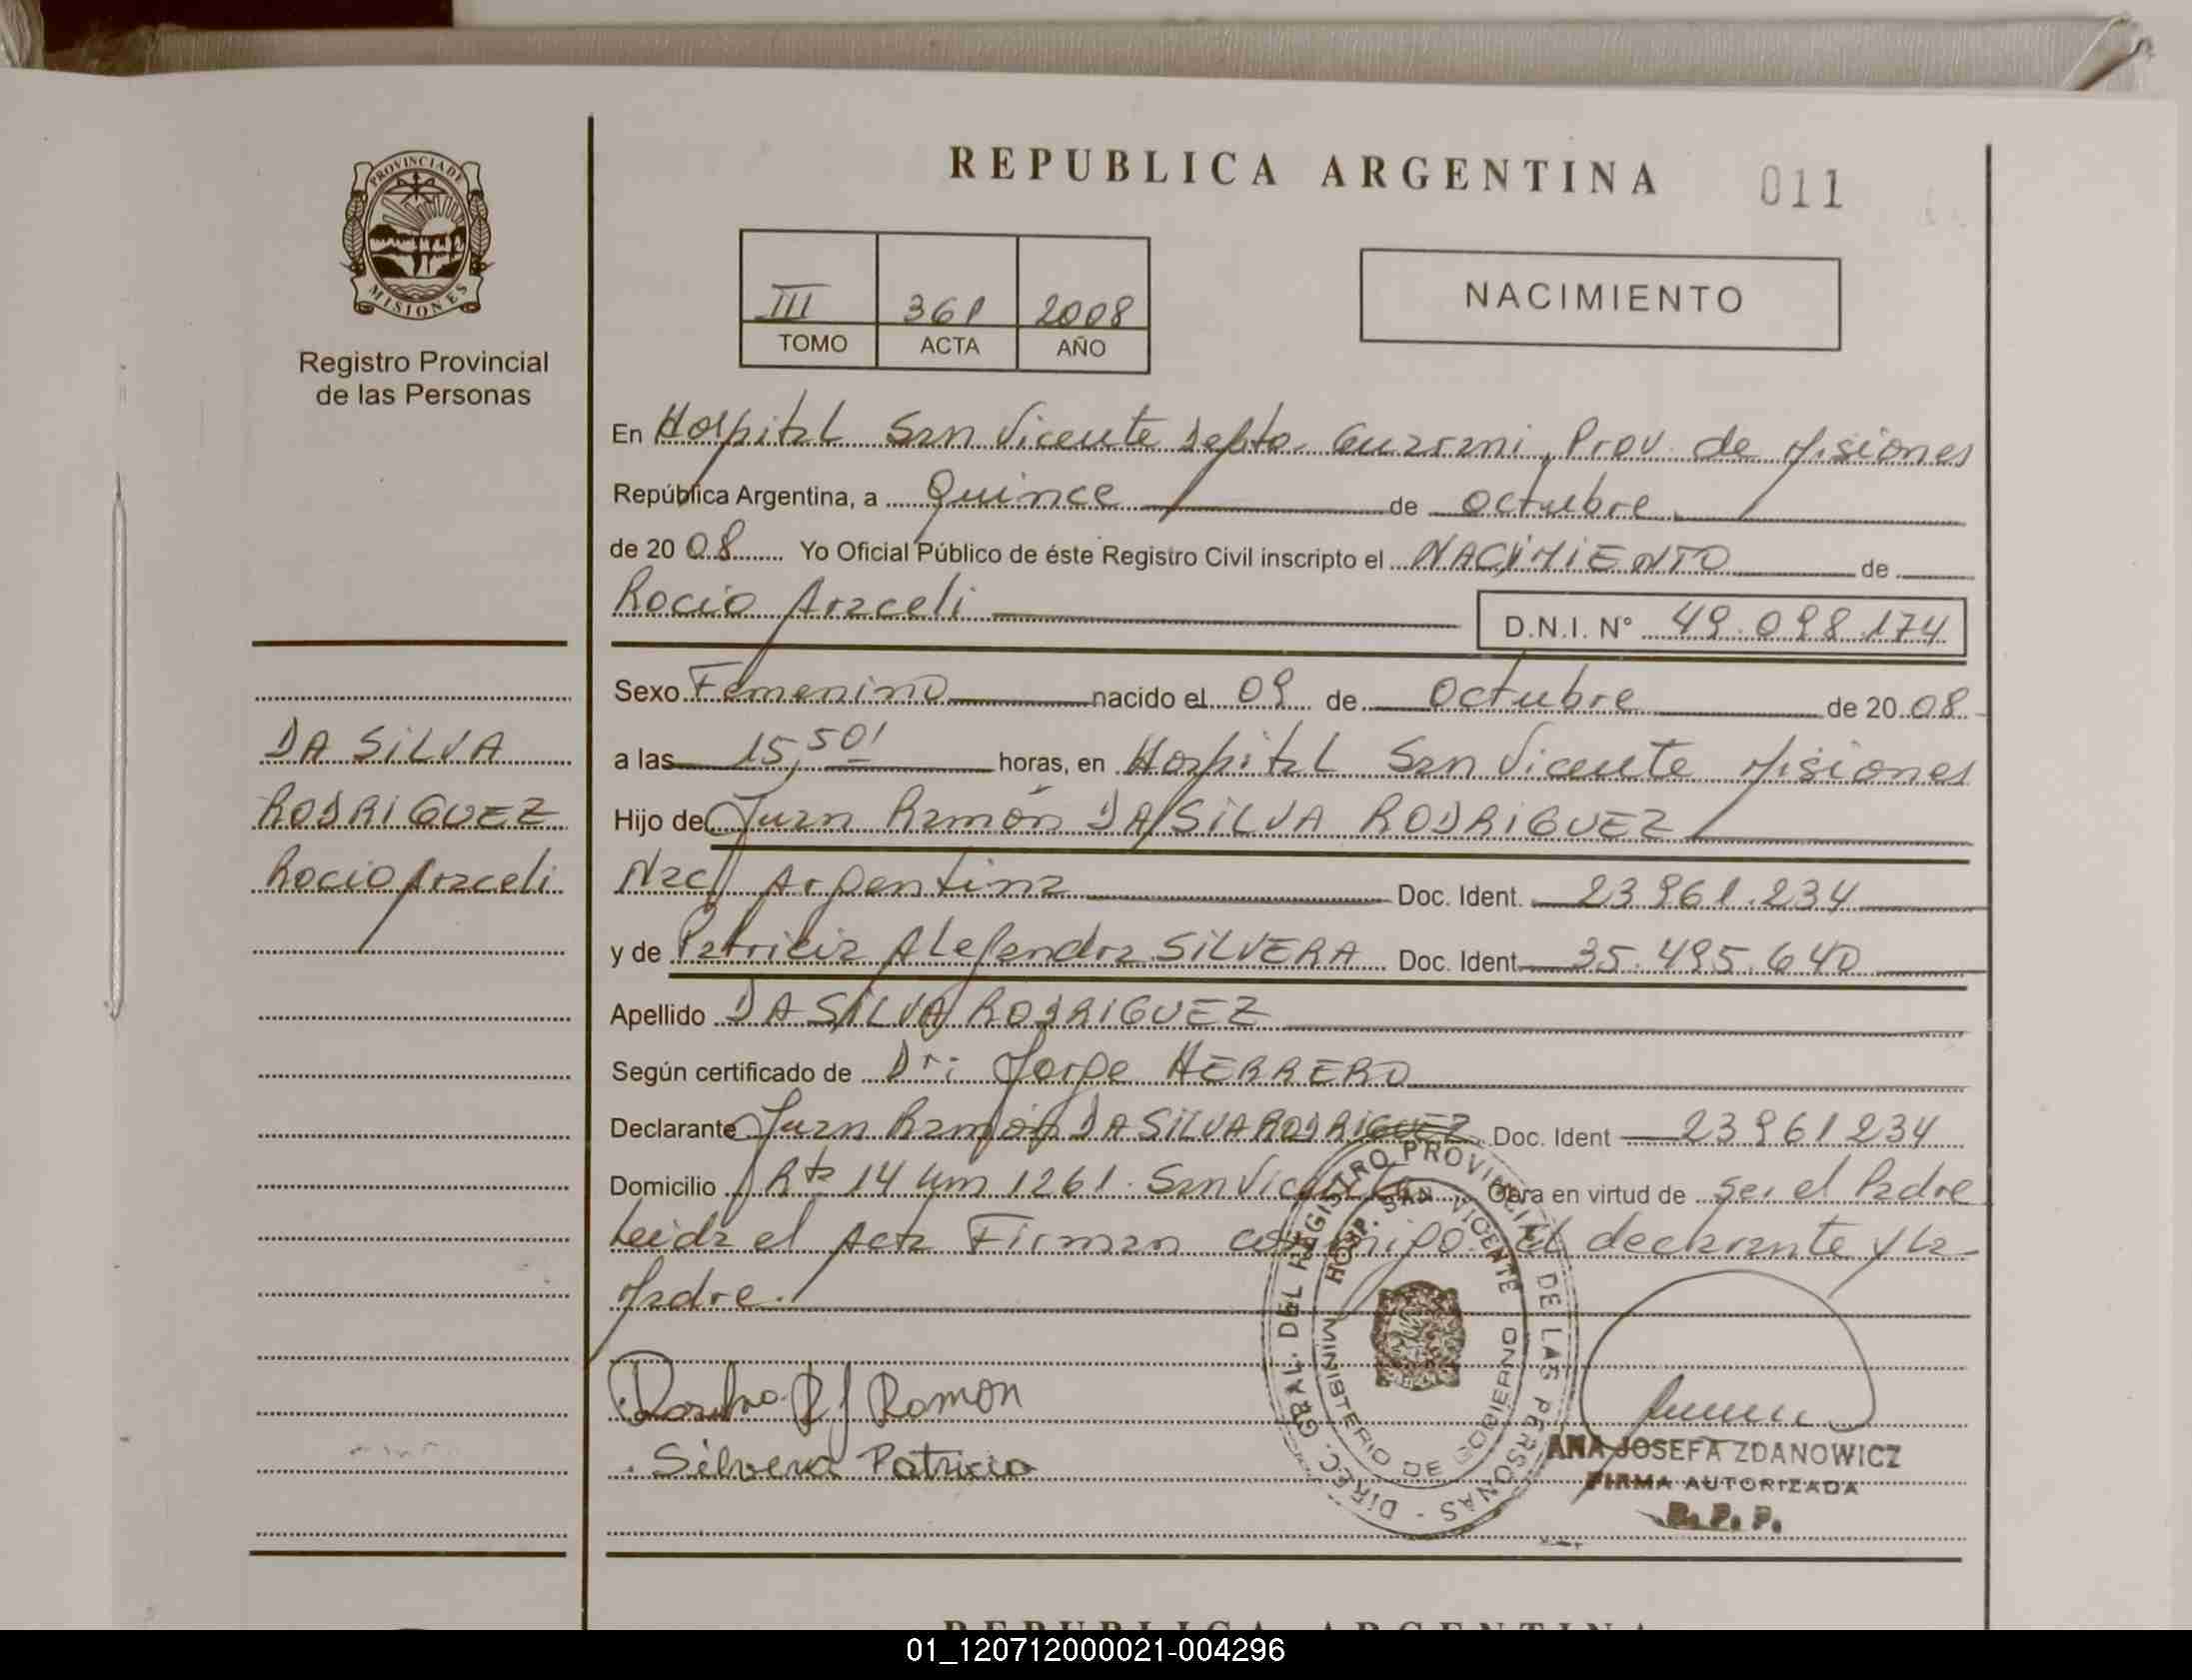 REPUBLICA ARGENTINA 011
PROVINCIA DE MISIONES
Registro Provincial
de las Personas
III 361 2008
TOMO ACTA AÑO
NACIMIENTO
En Hospital San Vicente Depto. Guarani, Prov. de Misiones
República Argentina, a Quince de octubre
de 2008 Yo Oficial Público de éste Registro Civil inscripto el NACIMIENTO de
Rocio Araceli D.N.I. N° 49.098.174
Sexo Femenino nacido el 09 de Octubre de 2008
a las 15,50' horas, en Hospital San Vicente Misiones
Hijo de Juan Ramón DA SILVA RODRIGUEZ
Nac. Argentina Doc. Ident. 23.961.234
y de Patricia Alejandra SILVERA Doc. Ident 35.495.640
Apellido DA SILVA RODRIGUEZ
Según certificado de Dr: Jorge HERRERO
Declarante Juan Ramón DA SILVA RODRIGUEZ Doc. Ident 23961234
Domicilio Rta 14 Km 1261. San Vicente Obra en virtud de ser el Padre
Leida el Acta Firman conmigo el declarante y la
Madre.
DA SILVA
RODRIGUEZ
Rocio Araceli
Ramon
Silvera Patricia
DIREC. GRAL. DEL REGISTRO PROVINCIAL DE LAS PERSONAS -
HOSP. SAN VICENTE
MINISTERIO DE GOBIERNO
ANA JOSEFA ZDANOWICZ
FIRMA AUTORIZADA
R. P. P.
REPUBLICA ARGENTINA
01_120712000021-004296